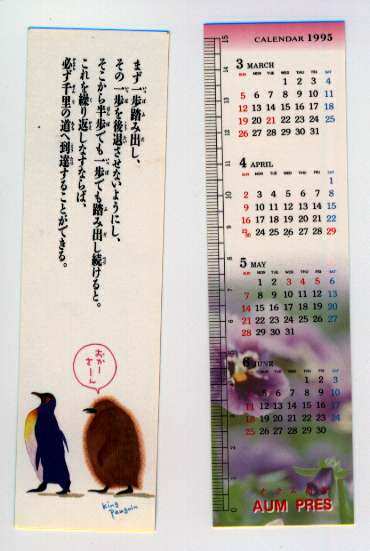 まず一歩踏み出し、
その一歩を後退させないようにし、
そこから半歩でも一歩でも踏み出し続けると。
これを繰り返しなすならば、
必ず千里の道へ到達することができる。
おかー
さーん
King
Penguin
CALENDAR 1995
3 MARCH
SUN MON TUE WED THU FRI SAT
1 2 3 4
5 6 7 8 9 10 11
12 13 14 15 16 17 18
19 20 21 22 23 24 25
26 27 28 29 30 31
4 APRIL
SUN MON TUE WED THU FRI SAT
1
2 3 4 5 6 7 8
9 10 11 12 13 14 15
16 17 18 19 20 21 22
23/30 24 25 26 27 28 29
5 MAY
SUN MON TUE WED THU FRI SAT
1 2 3 4 5 6
7 8 9 10 11 12 13
14 15 16 17 18 19 20
21 22 23 24 25 26 27
28 29 30 31
6 JUNE
SUN MON TUE WED THU FRI SAT
1 2 3
4 5 6 7 8 9 10
11 12 13 14 15 16 17
18 19 20 21 22 23 24
25 26 27 28 29 30
AUM PRES